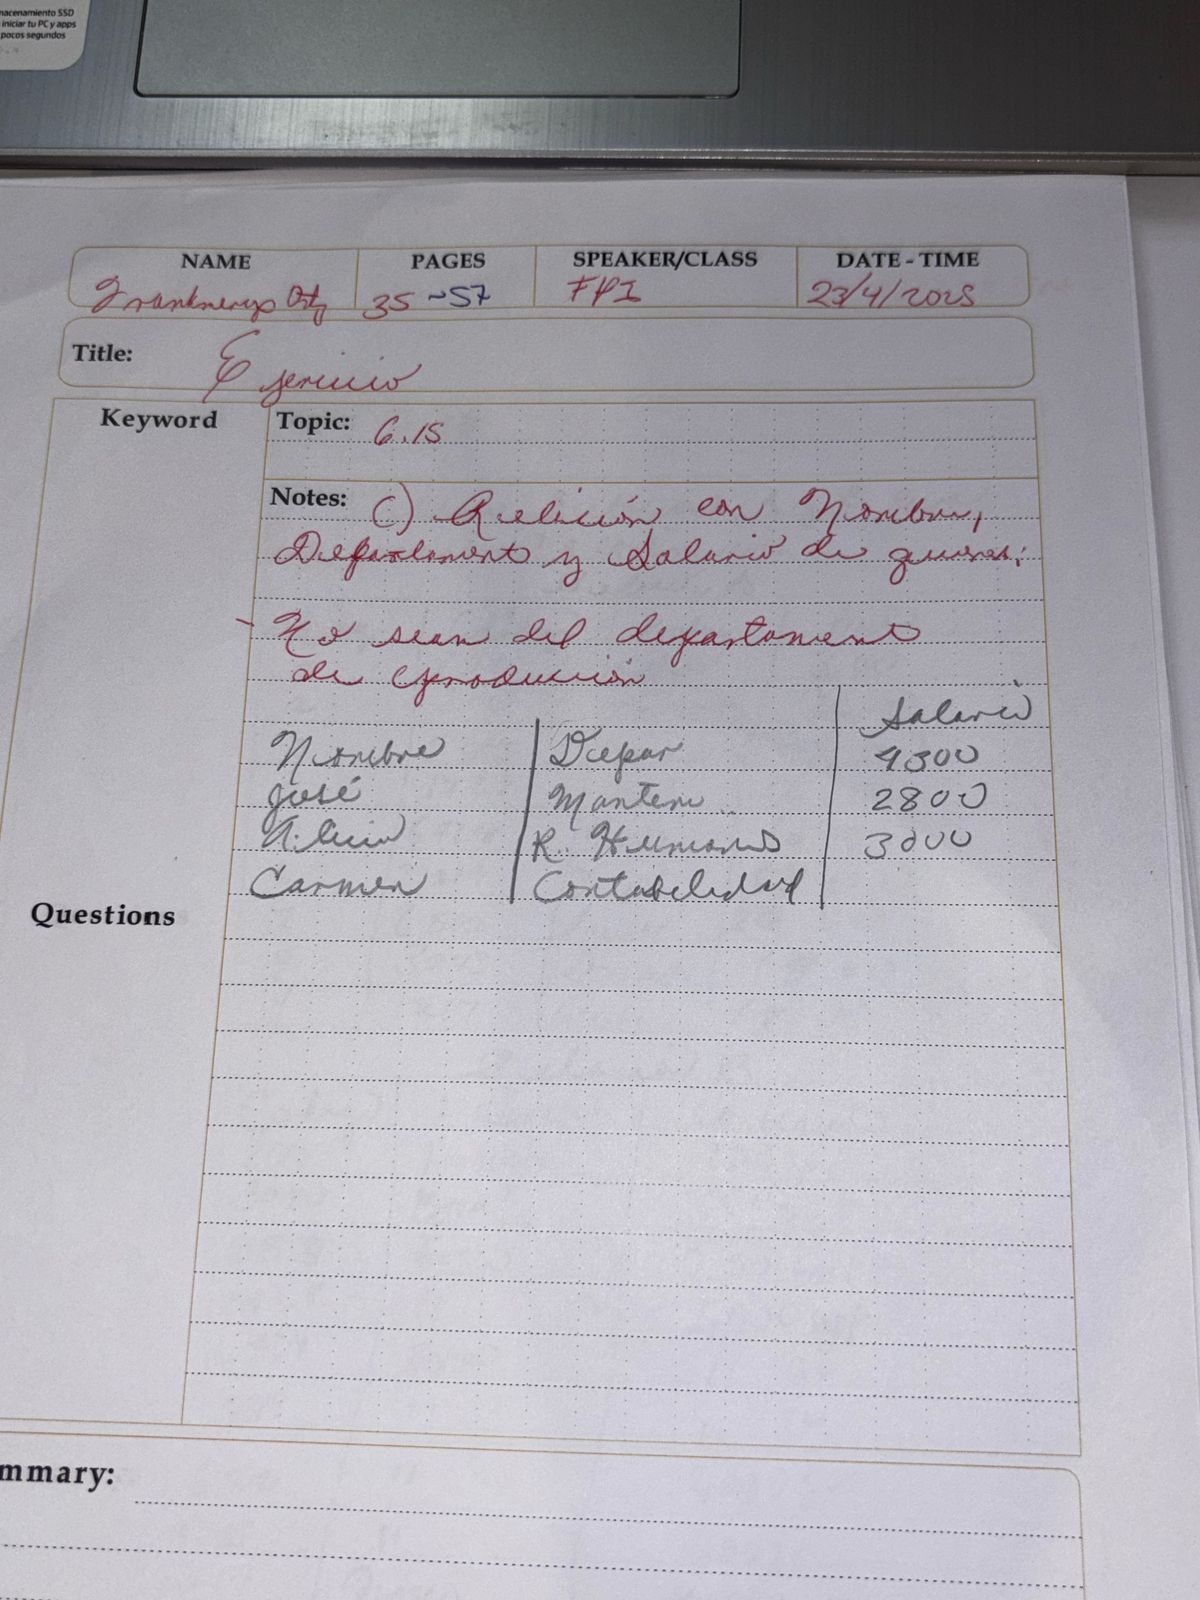 acenamiento SSD
iniciar tu PC y apps
pocos segundos
NAME PAGES SPEAKER/CLASS DATE - TIME
35 ~57 FPI 23/4/2025
Title: Ejericio
Keyword Topic: 6.15
Notes: C) Relición con Nombre,
Departamento y Salario de quienes:
- No sean del departamento
de producción
Salario
Nombre Depar 4300
José Manteni 2800
Alicia R. Humanos 3000
Carmen Contabilidad
Questions
mmary: